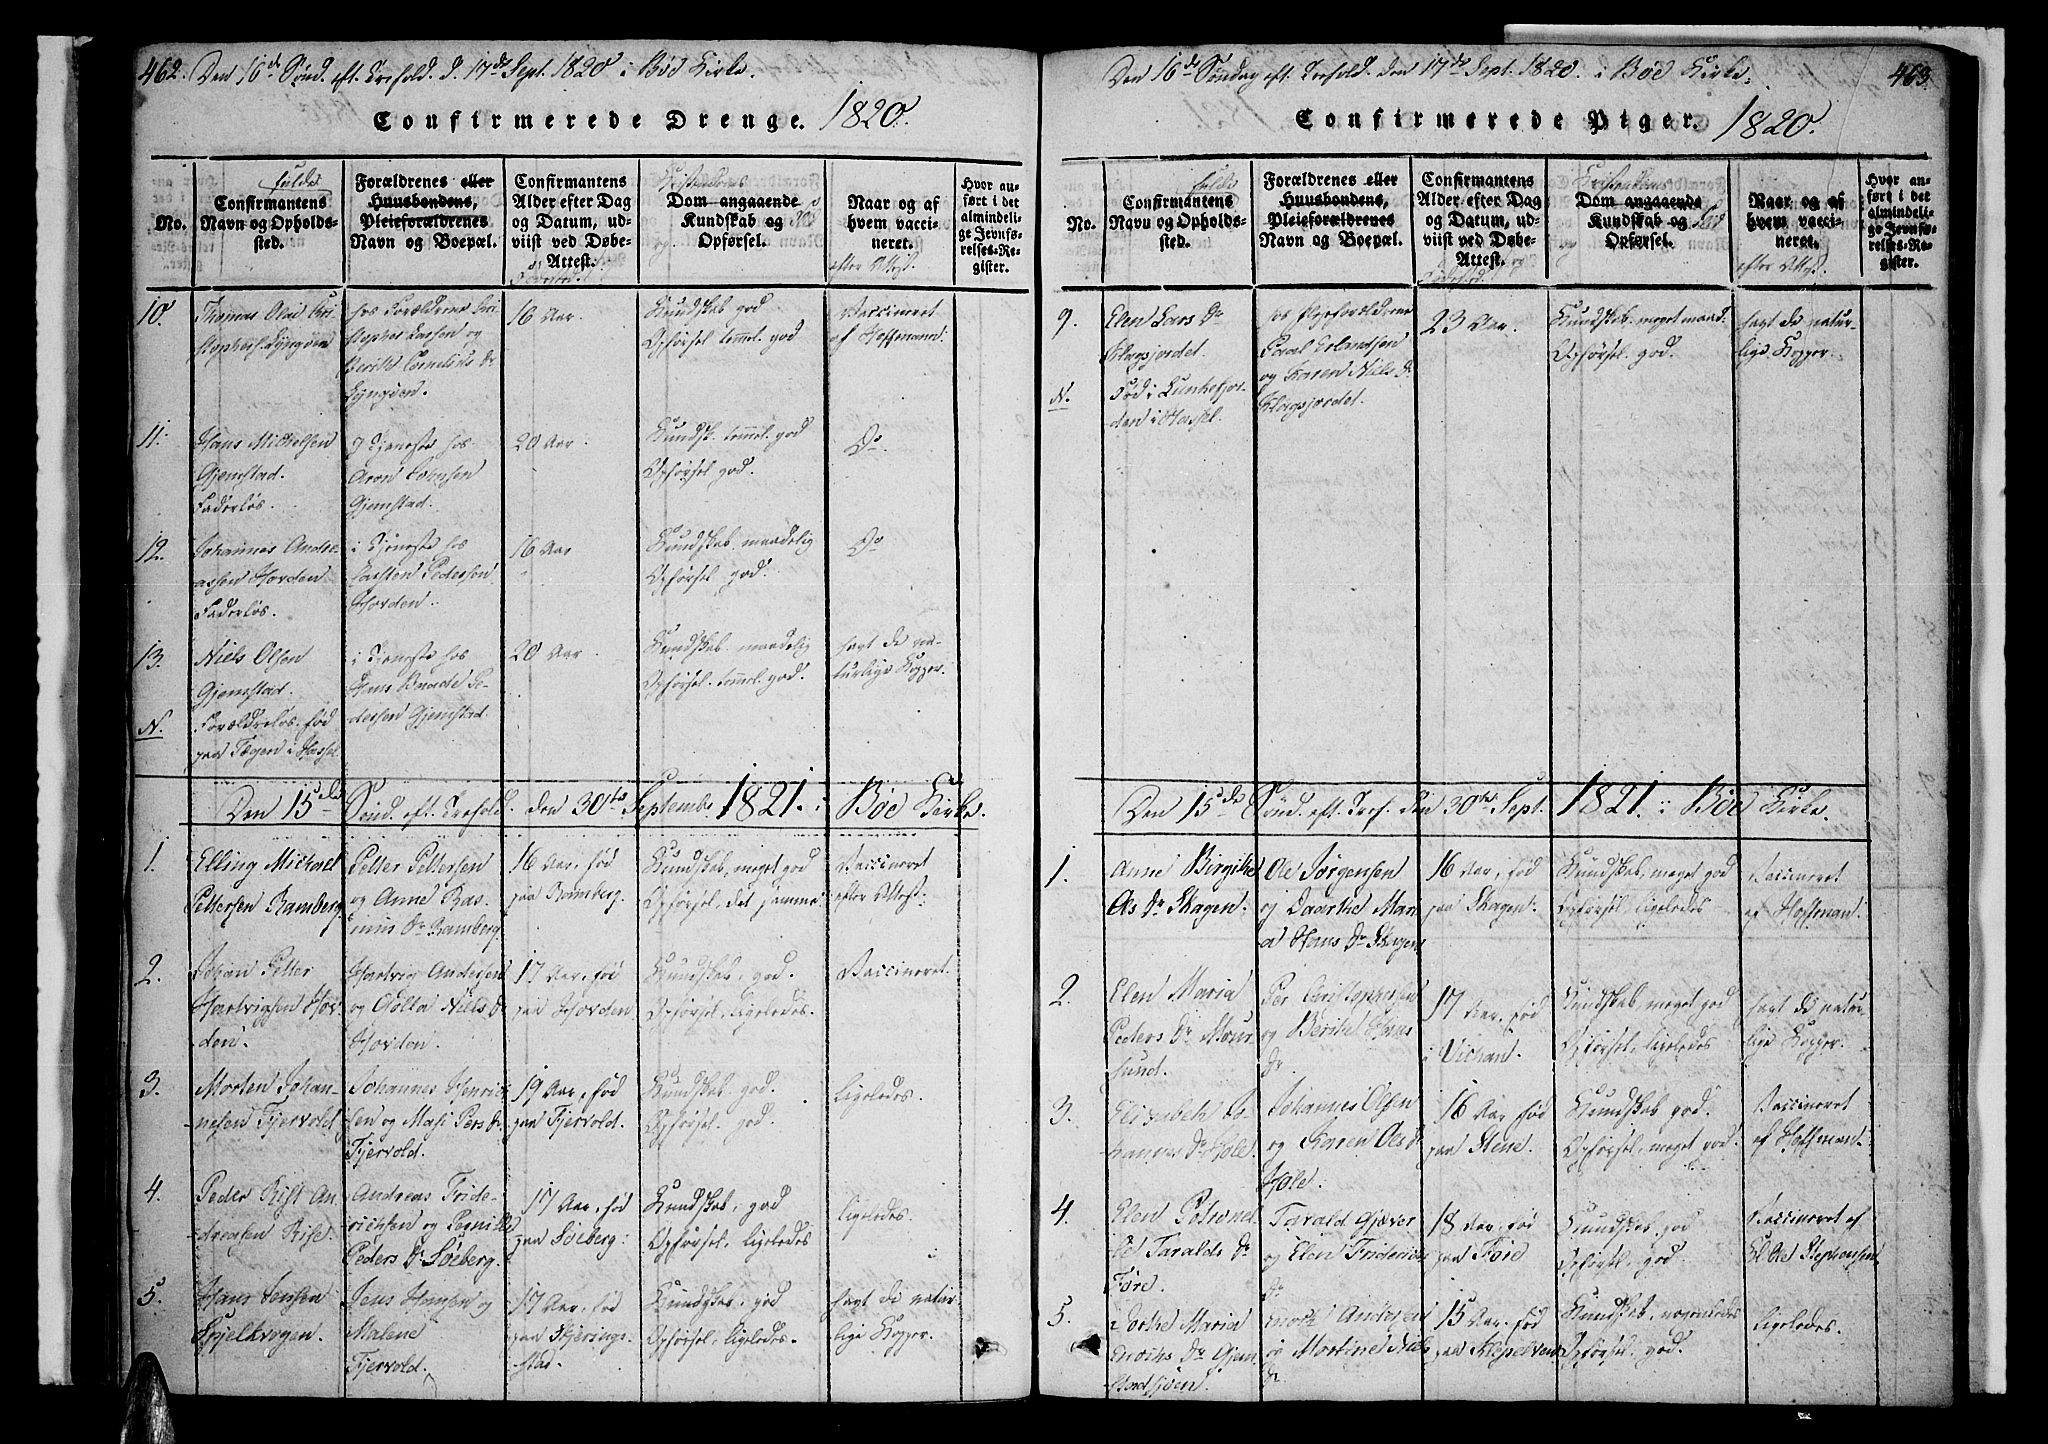 462. Den 16de Sönd. eft. Trefold. d. 17de Sept. 1820 i Böe Kirke.
Confirmerede Drenge. 1820.
No.
fulde
Confirmantens
Navn og Opholds-
sted.
Forældrenes eller
Huusbondens,
Pleieforældrenes
Navn og Boepæl.
Confirmantens
Alder efter Dag
og Datum, ud-
viist ved Døbe-
Attest.
Kristendoms
Dom angaaende
Kundskab og
Opførsel.
Naar og af
hvem vacci-
neret.
efter Attest.
Hvor an-
ført i det
almindeli-
ge Jevnfø-
relses-Re-
gister.
10.
Thomas Olai Kri-
stophers. Lyngöen
hos Forældrene Kri-
stopher Larsen og
Berith Cornelius Dr
Lyngöen.
16 Aar.
Kundskab god
Opförsel temmel. god
Vaccineret
af Hoffmann.
11.
Hans Mickelsen
Gjemstad.
Faderlös.
I Tjeneste hos
Aron
Gjemstad.
20 Aar
Kundsk. temmel. god
Opförsel god.
Do.
12.
Johannes Andre-
assen Hovden
Faderlös.
i Tjeneste hos
Karsten Pedersen
Hovden.
16 Aar
Kundskab maadelig
Opförsel god.
Do
13.
Niels Olsen
Gjemstad.
N.
Forældrelös. fød
paa i Hassel.
i Tjeneste hos
Hans Pe-
dersen Gjemstad.
20 Aar.
Kundskab. maadelig
Opförsel. temmel. god.
havt de na-
turlige Kopper.
Den 15de Sönd. eft. Trefold. den 30te Septembr. 1821. i Böe Kirke.
1.
Elling Michael
Pettersen Ramberg.
Petter Pettersen
og Anne Ras-
mus Dr Ramberg.
16 Aar, fød
paa Ramberg.
Kundskab, meget god
Opförsel, det samme
Vaccineret
efter Attest.
2.
Johan Petter
Hartvigsen Hov-
den.
Hartvig Andersen
og Golla Niels Dr
Hovden.
17 Aar, fød
paa Hovden.
Kundskab, god.
Opförsel, ligeledes.
Vaccineret.
3.
Morten Johan-
nesen Fjervold.
Johannes Henrich-
sen og Masi Pers Dr
Fjervold.
19 Aar, fød
paa Fjervold.
Kundskab, god.
Opförsel, god.
ligeledes.
4.
Peder Rist An-
dreasen Rise.
Andreas Fride-
richsen og Pernille
Peders Dr Söeberg.
17 Aar, fød
paa Söeberg.
Kundskab, god
Opförsel, ligeledes
ligeledes.
5.
Hans Jensen
Spjelkvogen.
Jens Hansen og
Malene
Fjervold.
17 Aar, fød
paa Skjerings-
stad.
Kundskab, god
Opförsel, ligeledes.
havt de natur-
lige Kopper.
Den 16de Söndag eft. Trefold. den 17de Sept. 1820. i Böe Kirke. 463.
Confirmerede Piger. 1820.
No.
fulde
Confirmantens
Navn og Opholds-
sted.
Forældrenes eller
Huusbondens,
Pleieforældrenes
Navn og Boepæl.
Confirmantens
Alder efter Dag
og Datum, ud-
viist ved Døbe-
Attest.
Kristendoms
Dom angaaende
Kundskab og
Opførsel.
Naar og af
hvem vacci-
neret.
efter Attest.
Hvor an-
ført i det
almindeli-
ge Jevnfø-
relses-Re-
gister.
9.
Elen Lars Dr
Klagsjordet.
N.
Fød i Lunkefjor-
den i Hassel.
hos Plejeforældrene
Paal Erlandsen
og Karen Niels Dr
Klagsjordet.
23 Aar.
Kundskab. meget maad.
Opförsel. god.
havt de natur-
lige Kopper.
Den 15de Sönd. eft. Tref. den 30te Sept. 1821. i Böe Kirke.
1.
Anne Birgitha
Ols Dr Skagen.
Ole Jörgensen
og Daarthe Mari-
a Hans Dr Skagen
16 Aar, fød
paa Skagen.
Kundskab, meget god
Opförsel, ligeledes
Vaccineret
af Hoffman.
2.
Elen Maria
Peders Dr Maur-
sund.
Per Christophersen
og Berithe Hans
Dr.
17 Aar, fød
i Vichan.
Kundskab, meget god
Opförsel, ligeledes
havt de natur-
lige Kopper.
3.
Elisabeth Jo-
hannes Dr Hole.
Johannes Olsen
og Karen Ols Dr
Hole.
16 Aar fød
paa Stene.
Kundskab god.
Opförsel, meget god.
Vaccineret
af Hoffman.
4.
Elen Petronel-
le Taralds Dr
Före.
Tarald Gjæver
og Elen Friderichs
Dr
18 Aar, fød
paa Före
Kundskab, god
Opförsel, god.
Vaccineret af
Kl. Ole Stephensen
5.
Dorthe Maria
Enochs Dr Gjem-
Enoch Andersen
og Martine Niels
Dr
15 Aar. fød
paa
Kundskab,
Opförsel. god.
ligeledes.